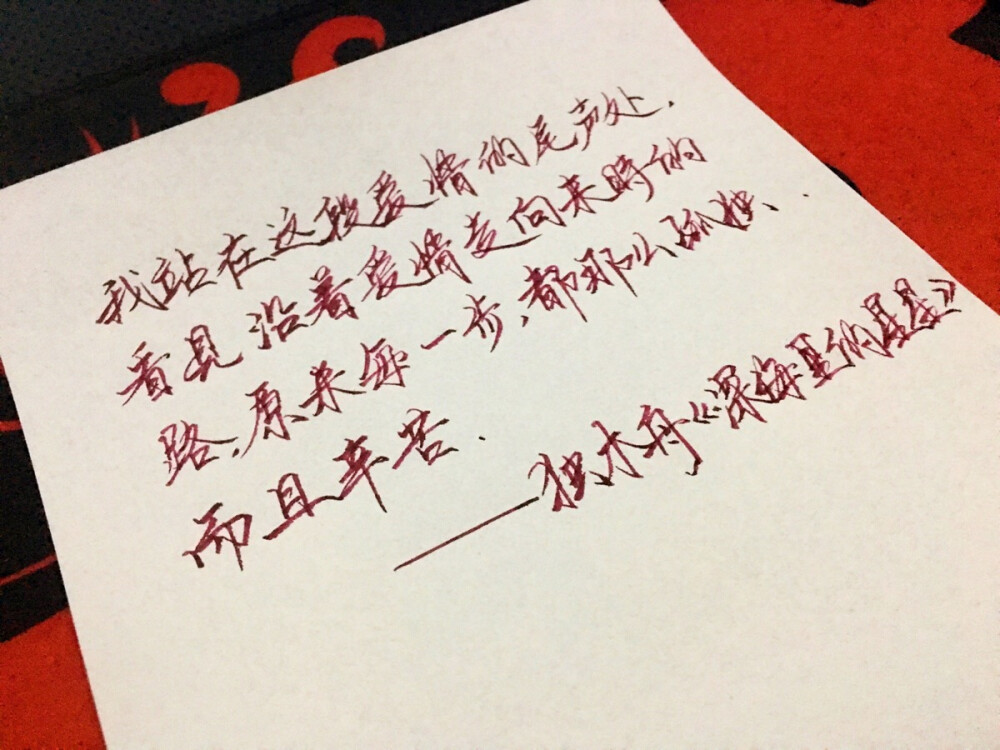 我站在这段爱情的尾声处.
看见沿着爱情走向来時的
路.原来每一步,都那么孤独、
而且辛苦.
——独木舟《深海里的星星》